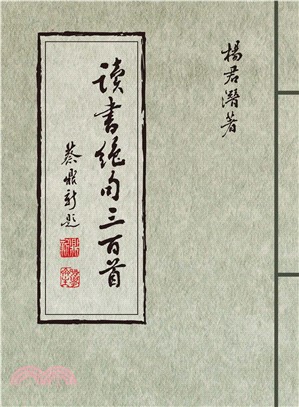 楊君潛著
讀書絕句三百首
蔡鼎新題